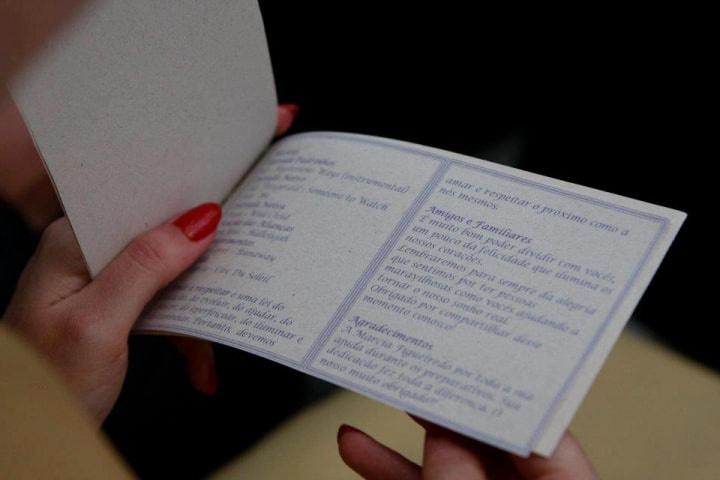 Entrada Padrinhos
Ways (instrumental)
Entrada Noivo
Someone to Watch
Me
Entrada Noiva
Wild Child
das Alianças
Hallelujah
Cumprimentos
Someway
Cirq Du Soleil
respeitar é uma lei do
de evoluir, do ajudar, do
do aperfeiçoar, do iluminar e
Portanto, devemos
amar e respeitar o próximo como a
nós mesmos.
Amigos e Familiares
É muito bom poder dividir com vocês,
um pouco da felicidade que ilumina os
nossos corações.
Lembraremos para sempre da alegria
que sentimos por ter pessoas
maravilhosas como vocês ajudando a
tornar o nosso sonho real.
Obrigado por compartilhar desse
momento conosco!
Agradecimentos
A Marcia Figueiredo por toda a sua
ajuda durante os preparativos. Sua
dedicação fez toda a diferença. O
nosso muito obrigado!